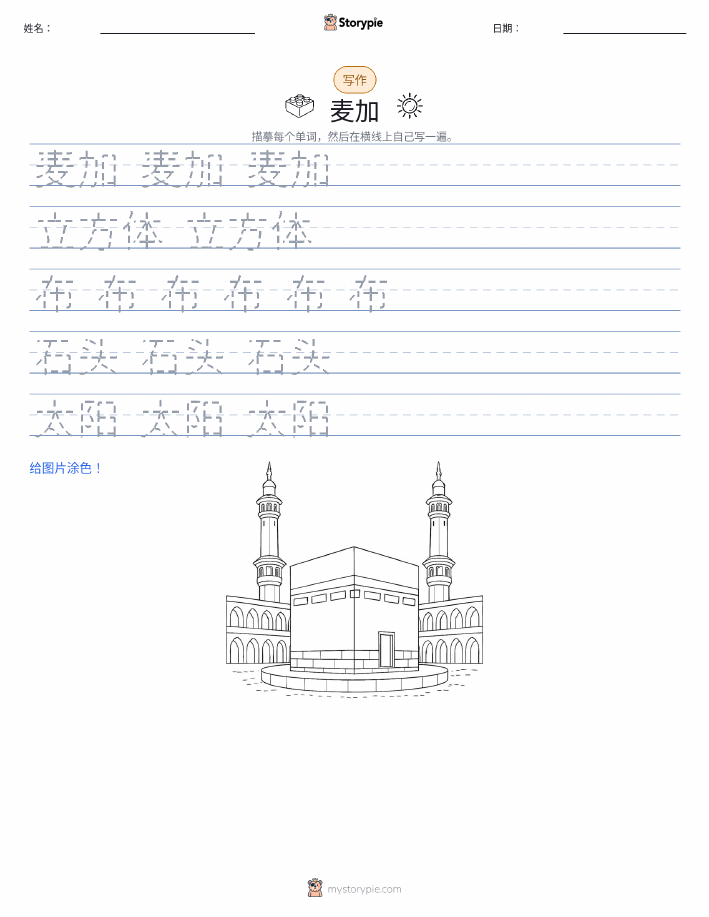 姓名：
Storypie
日期：
写作
麦加
描摹每个单词，然后在横线上自己写一遍。
麦加 麦加 麦加
立方体 立方体
布 布 布 布 布 布
石头 石头 石头
太阳 太阳 太阳
给图片涂色！
mystorypie.com